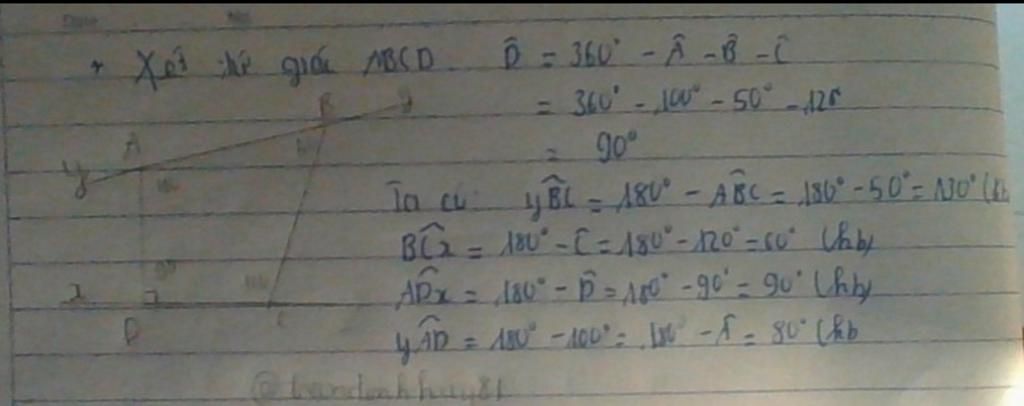 + Xét tứ giác ABCD. D̂ = 360° - Â - B̂ - Ĉ
= 360° - 100° - 50° - 120
= 90°
Ta có: yB̂C = 180° - AB̂C = 180° - 50° = 130° (kb
BĈx = 180° - Ĉ = 180° - 120° = 60° (kb)
AD̂x = 180° - D̂ = 180° - 90° = 90° (kb)
yÂD = 180° - 100° = 180° - Â = 80° (kb
B y
A
y
x
D C